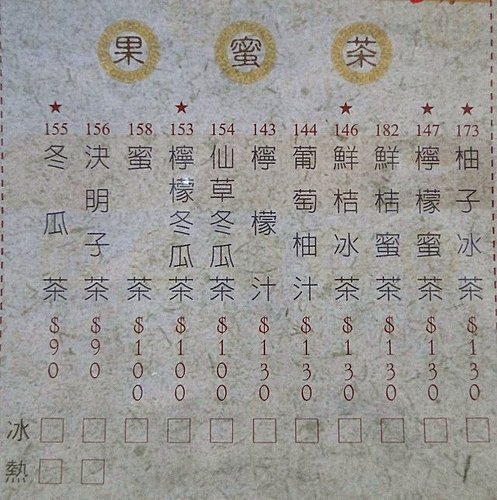 果蜜茶
★ 173 柚子冰茶 $130
★ 147 檸檬蜜茶 $130
182 鮮桔蜜茶 $130
★ 146 鮮桔冰茶 $130
144 葡萄柚汁 $130
143 檸檬汁 $130
154 仙草冬瓜茶 $100
★ 153 檸檬冬瓜茶 $100
158 蜜茶 $100
156 決明子茶 $90
★ 155 冬瓜茶 $90
冰 □ □ □ □ □ □ □ □ □ □ □
熱 □ □